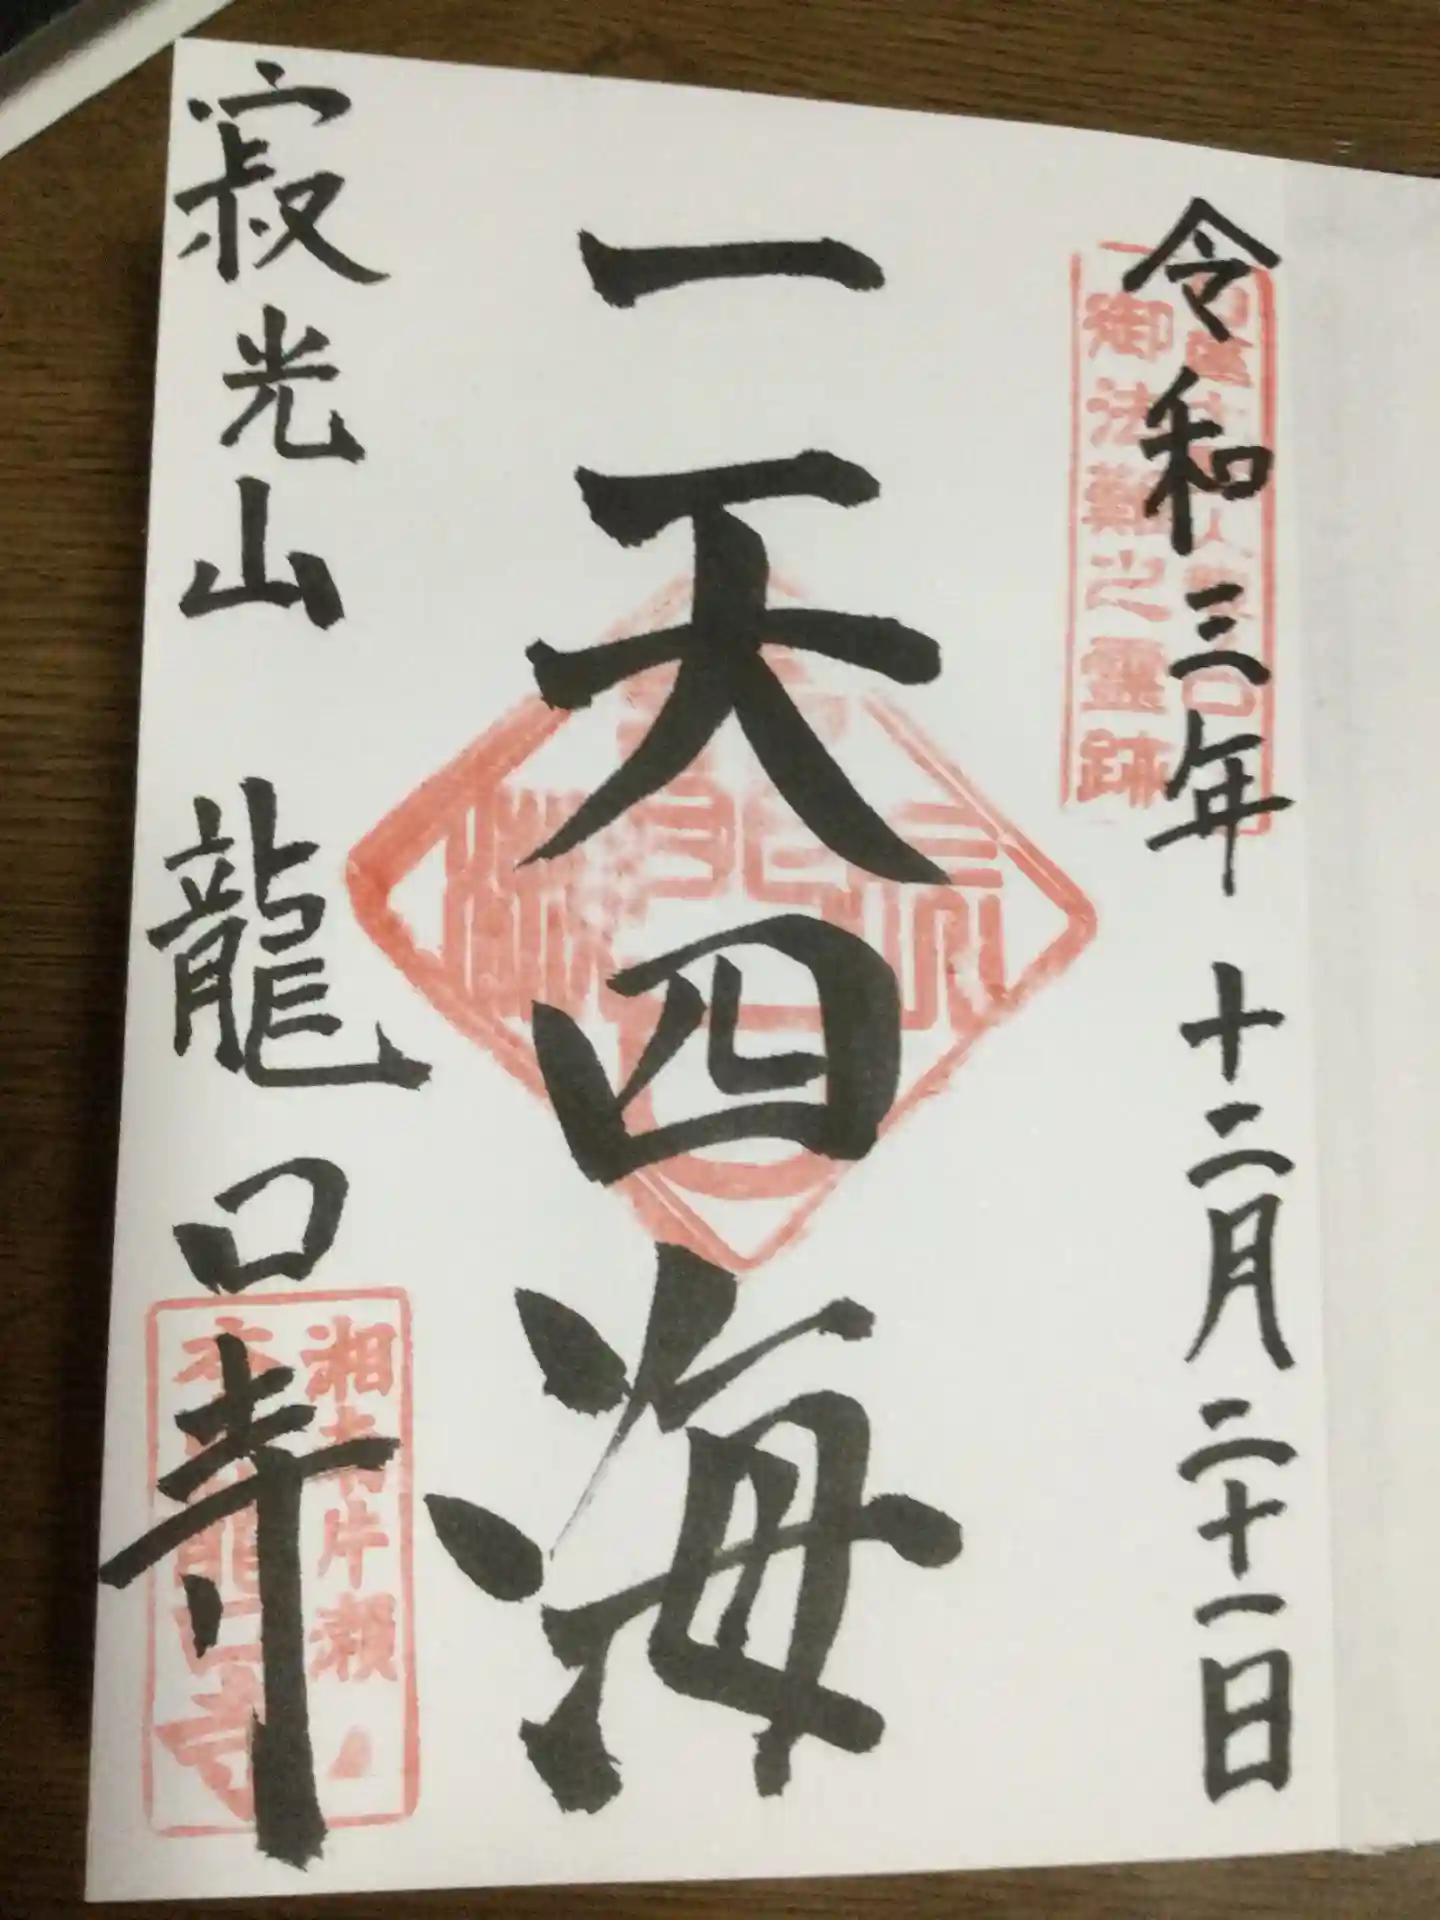 令和三年 十二月 二十一日
御法難之霊跡
一天四海
寂光山 龍口寺
湘南片瀬
本山龍口寺